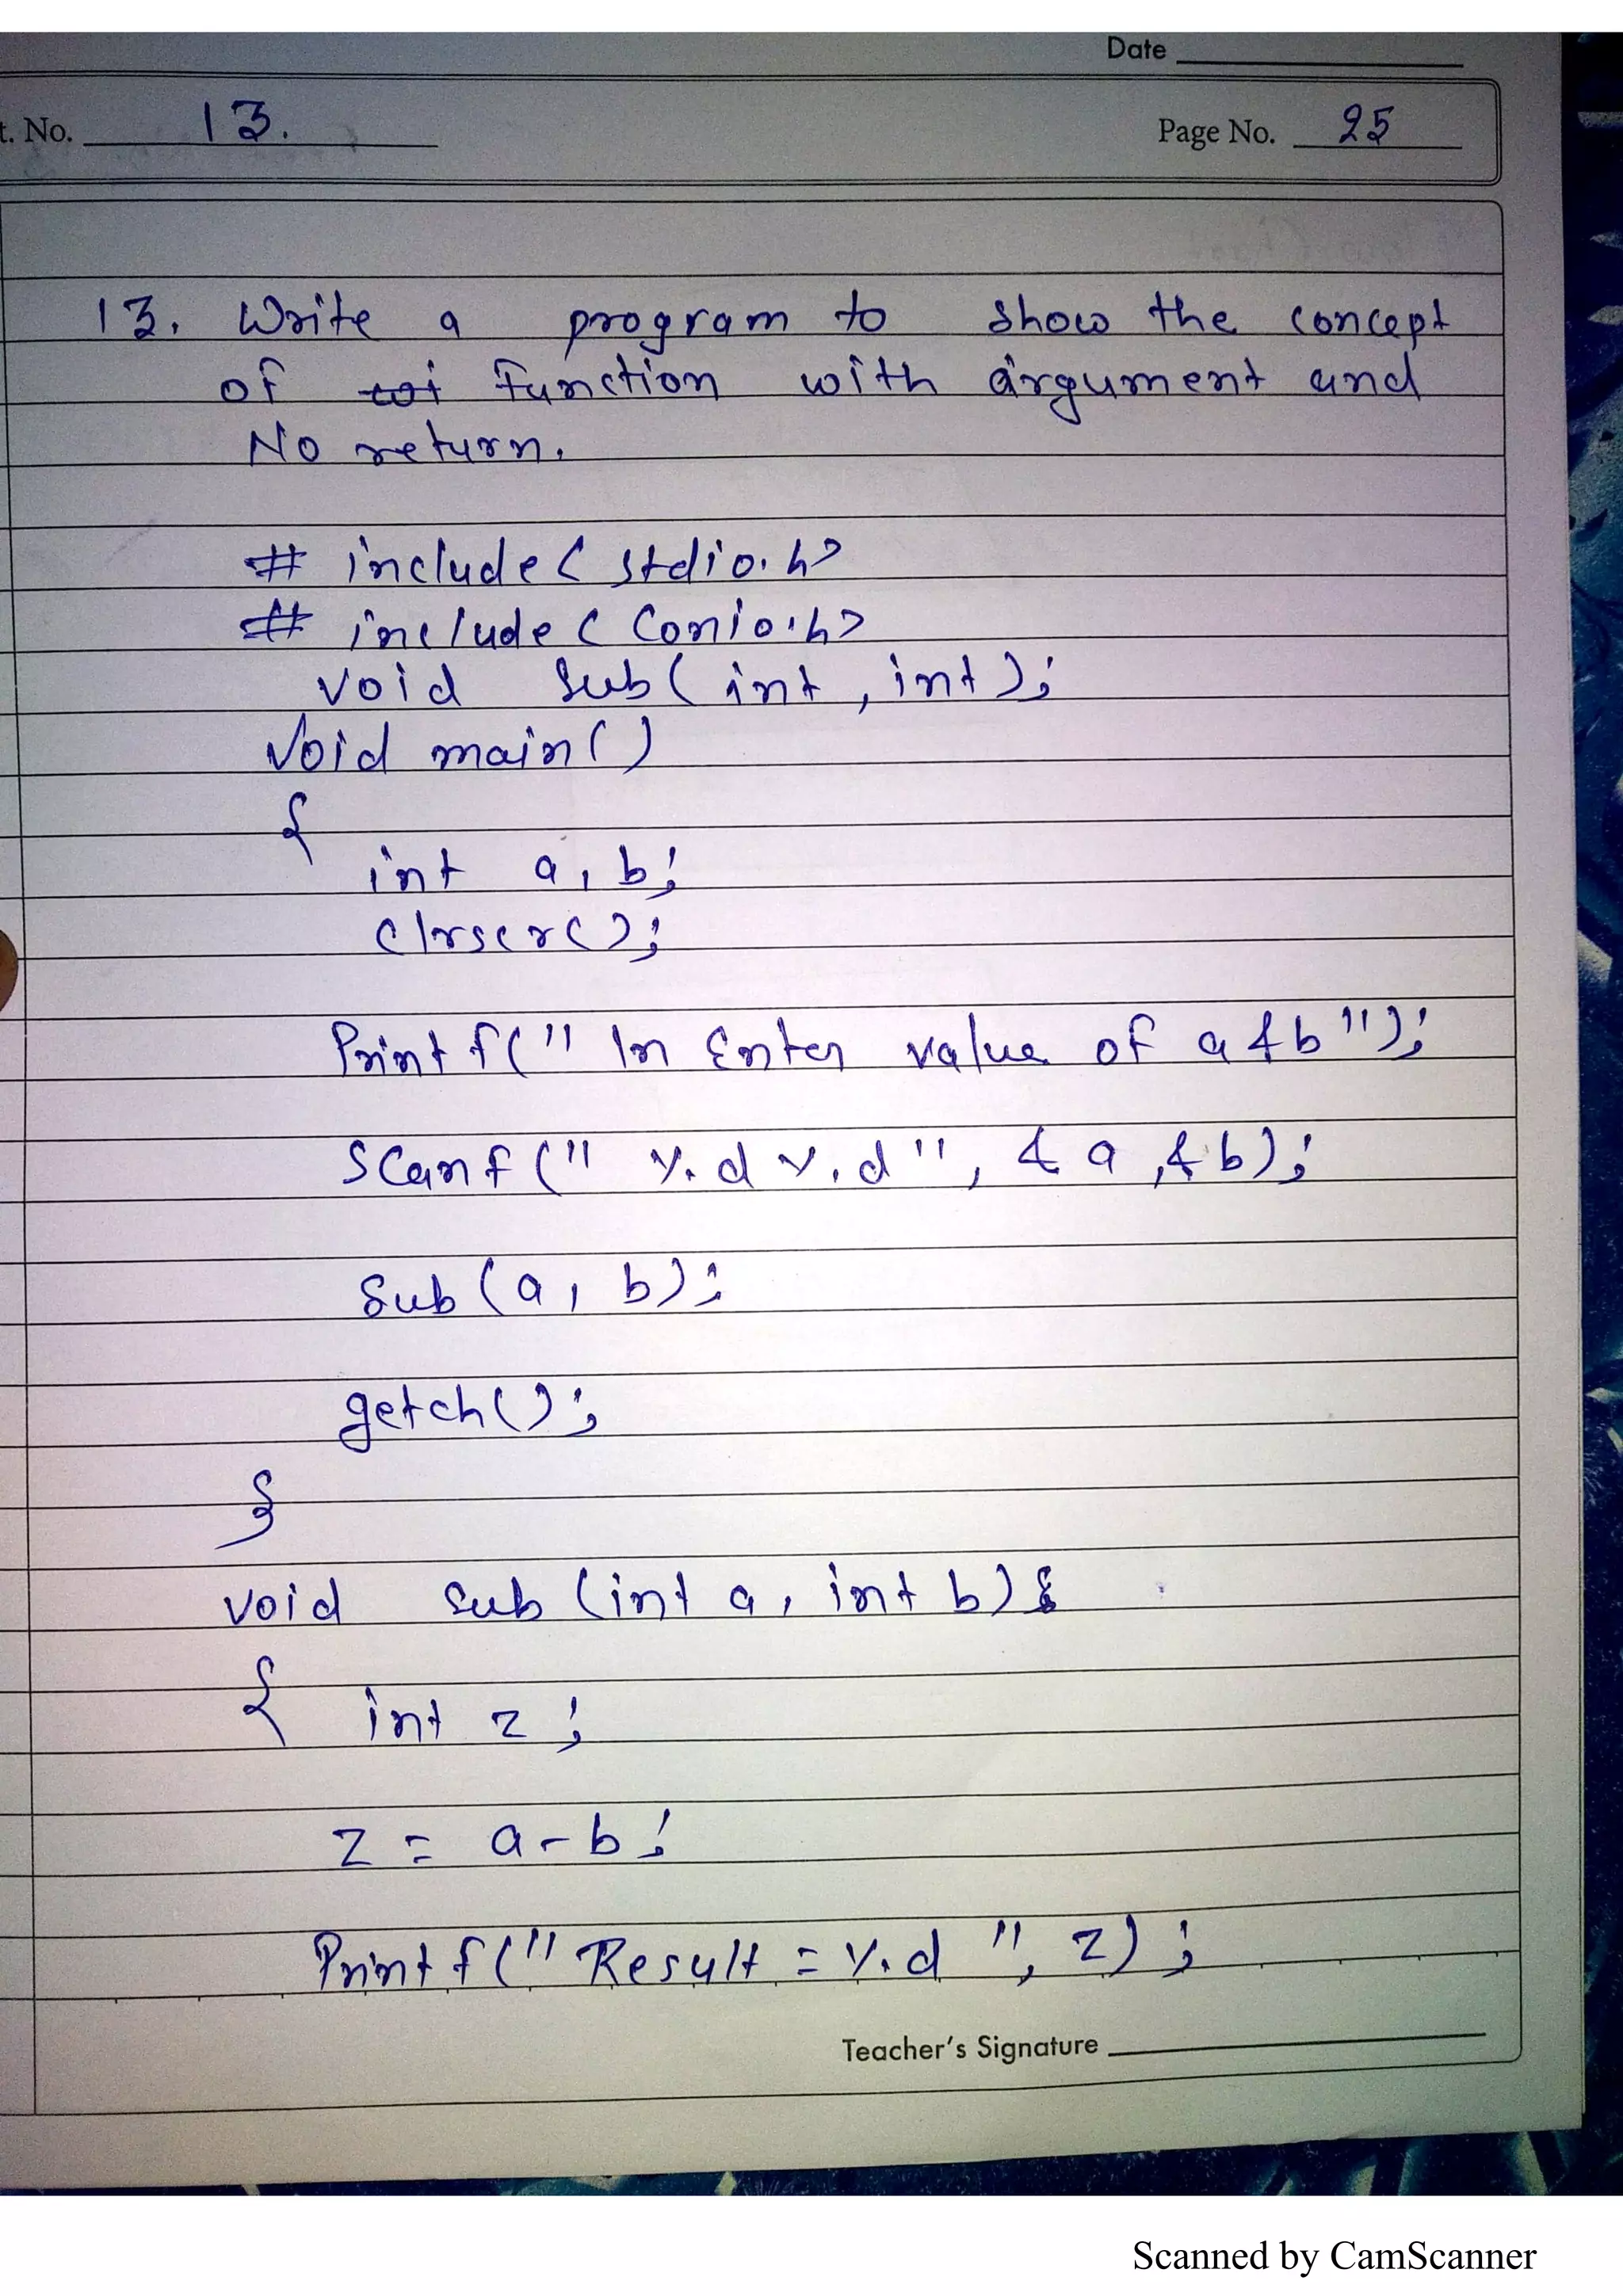 Date
t. No. 13.
Page No. 25
13. Write a program to show the concept
of function with argument and
No return.
# include < stdio.h>
# include < Conio.h>
void sub( int , int );
void main ( )
{
int a, b;
clrscr( );
Printf(" \n Enter value of a & b ");
Scanf (" %d %d ", & a , & b);
Sub (a , b);
getch( );
}
void sub (int a, int b)
{ int z ;
z = a - b ;
Printf (" Result = %d ", z) ;
Teacher's Signature
Scanned by CamScanner